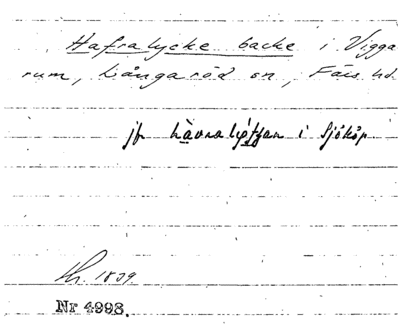 Hafralycke backe i Vigga
rum, Långaröd sn, Färs hd.
jfr hàvralýkkan i Sjököp
Nr 4998.